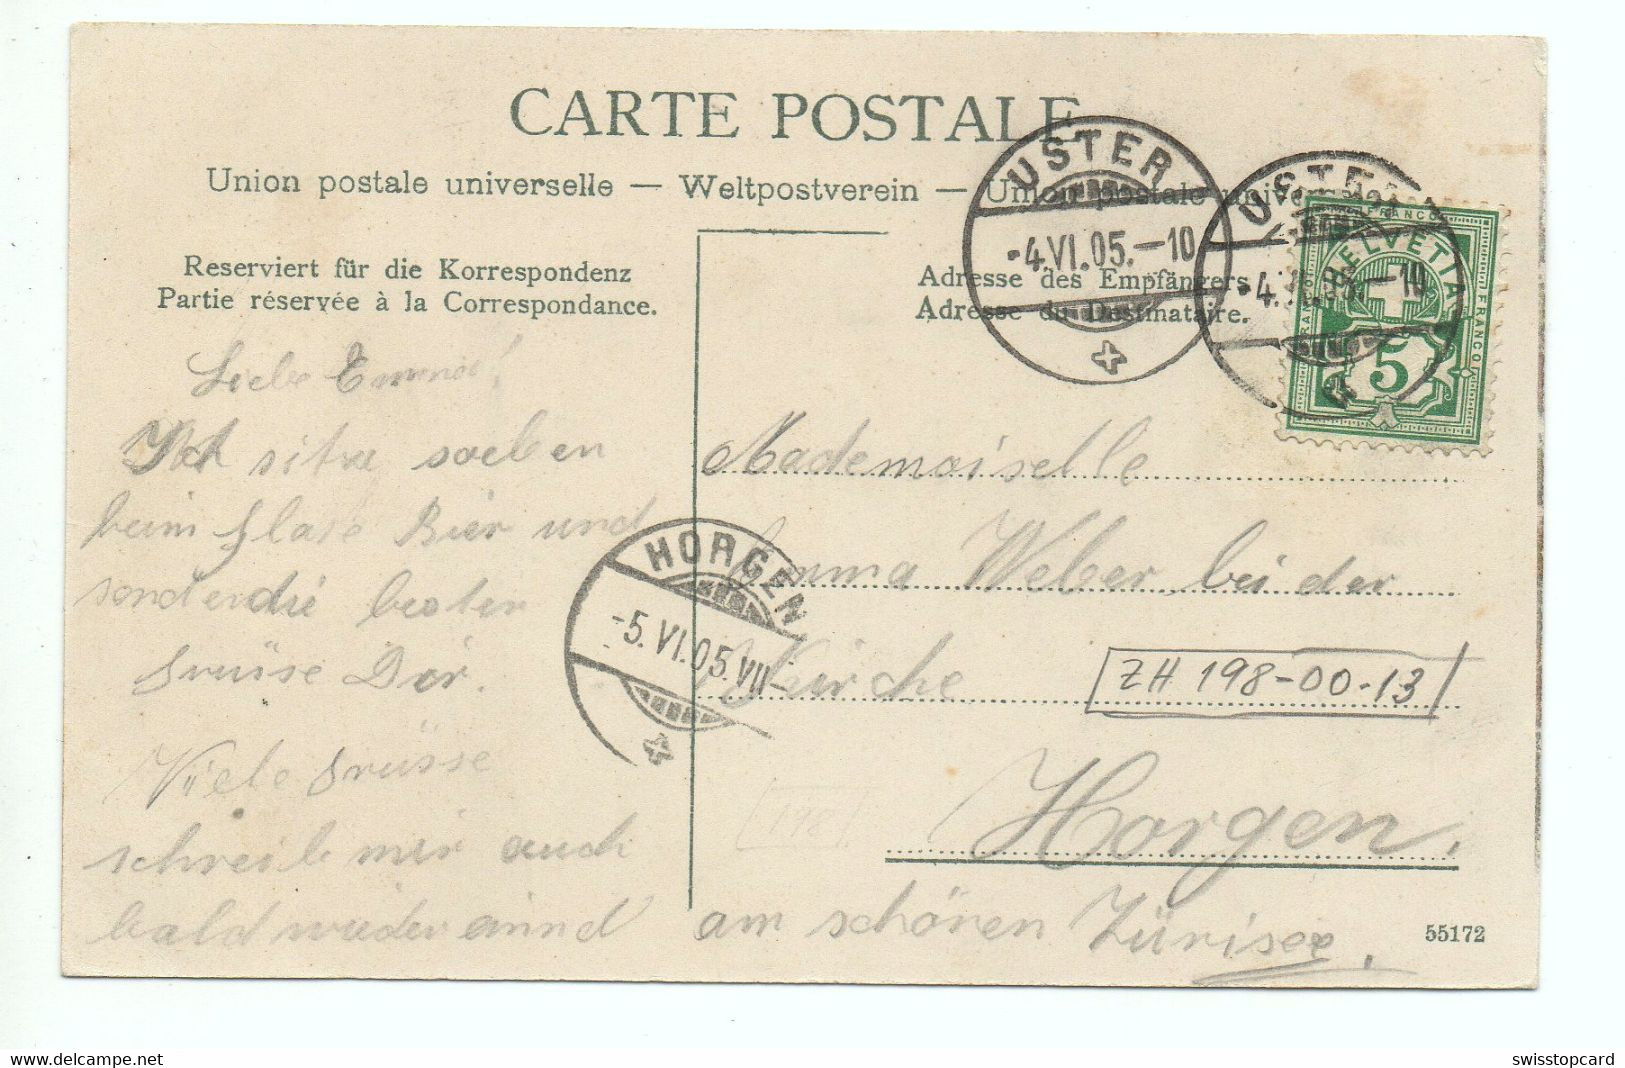 CARTE POSTALE
Union postale universelle — Weltpostverein — Union postale universelle
Reserviert für die Korrespondenz
Partie réservée à la Correspondance.
Adresse des Empfängers.
Adresse du Destinataire.
USTER
-4.VI.05.-10
USTER
-4.VI.05.-10
HELVETIA
FRANCO
FRANCO
FRANCO
5
Liebe Emma!
Ich sitze soeben
beim Glase Bier und
sende die besten
Grüsse Dir.
Viele Grüsse
schreib mir auch
bald wieder einmal
HORGEN
-5.VI.05.VII-
Mademoiselle
Emma Weber bei der
Kirche
ZH 198-00-13
198
Horgen.
am schönen Zürisee.
55172
delcampe.net
swisstopcard